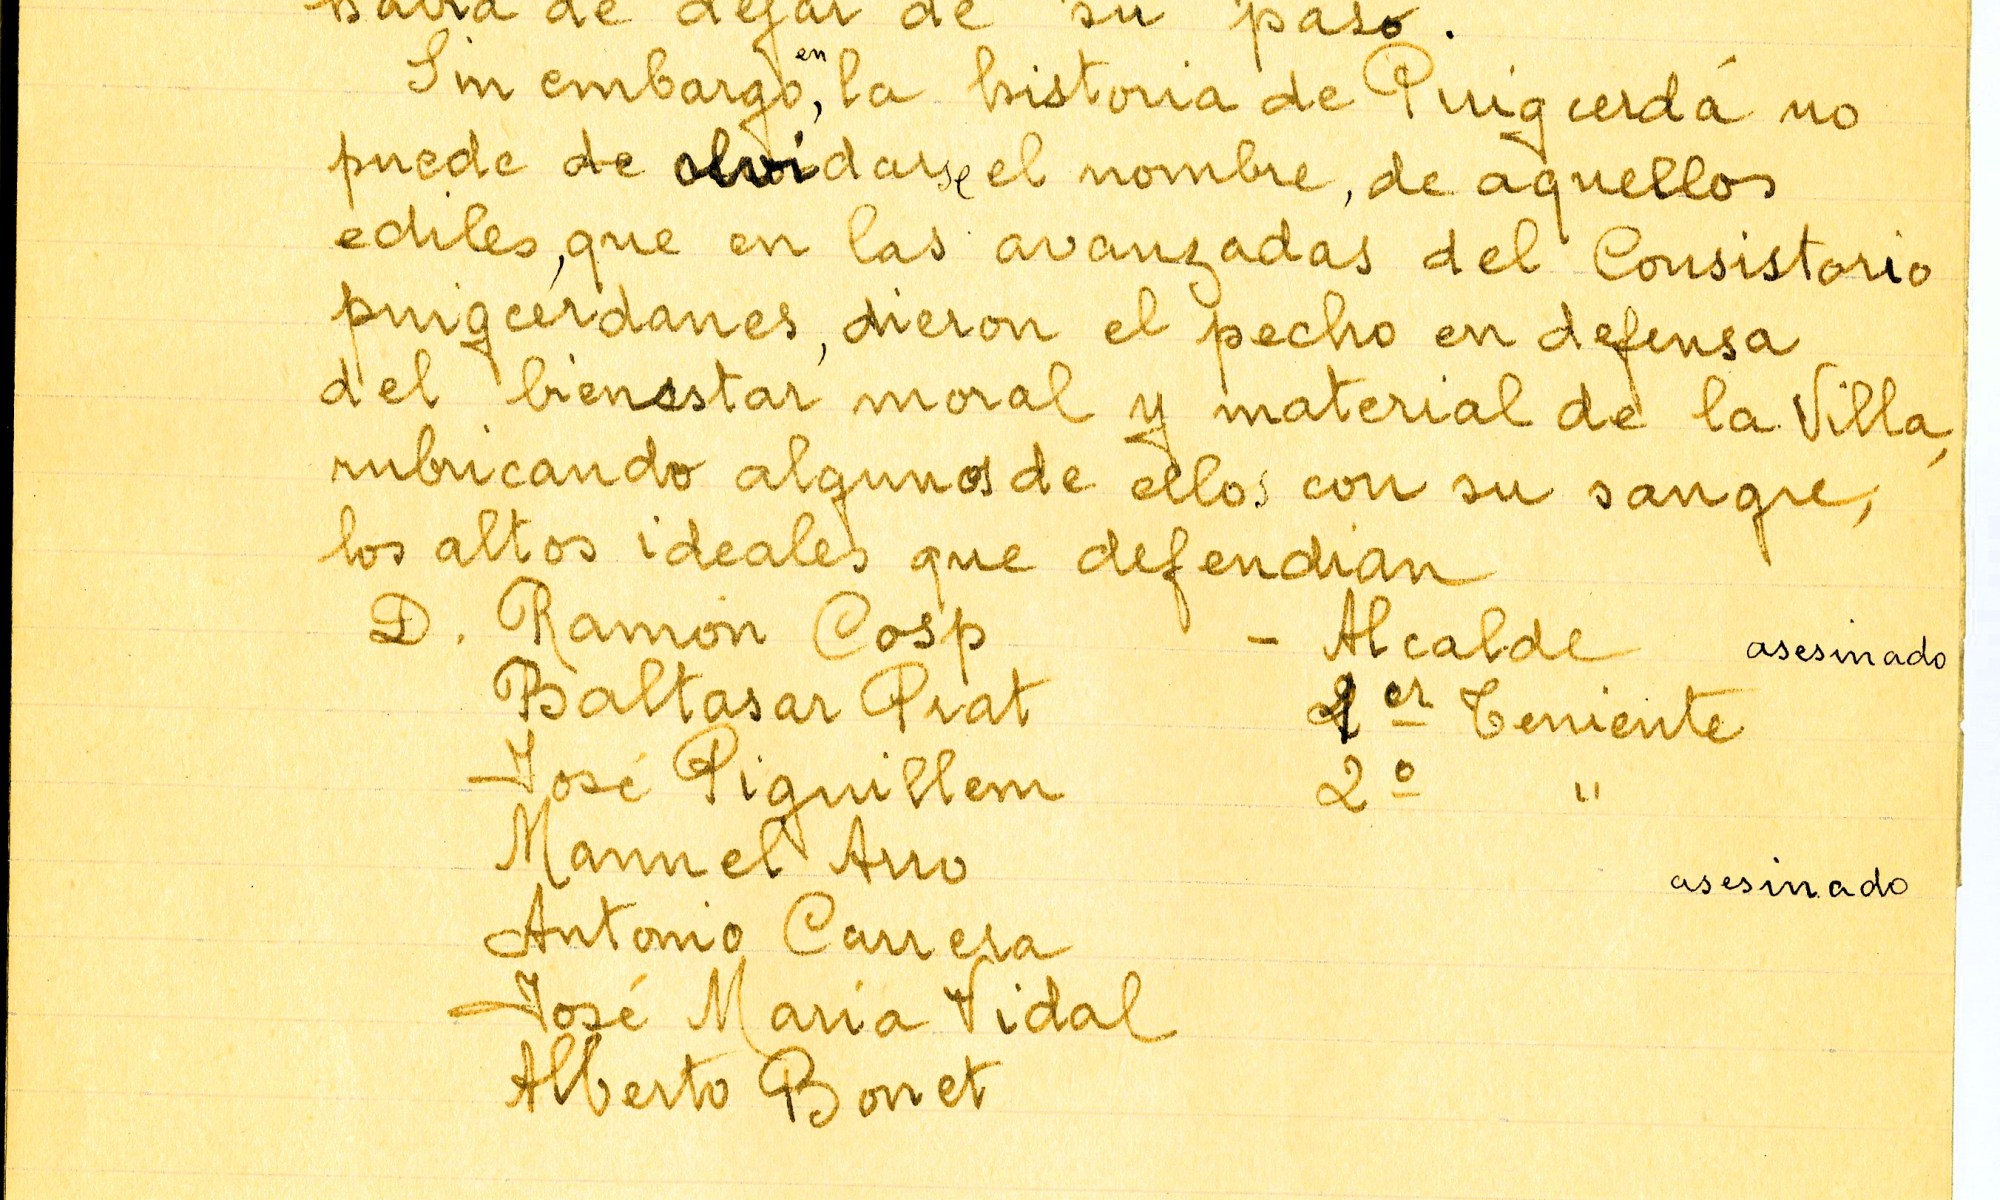 habra de dejar de su paso.
Sin embargo, en la historia de Puigcerdá no
puede de olvidarse el nombre, de aquellos
ediles, que en las avanzadas del Consistorio
puigcerdanes, dieron el pecho en defensa
del bienestar moral y material de la Villa,
rubricando algunos de ellos con su sangre,
los altos ideales que defendian
D. Ramón Cosp - Alcalde asesinado
Baltasar Prat 1er Teniente
José Piguillem 2º "
Manuel Arro asesinado
Antonio Carrera
José María Vidal
Alberto Bonet